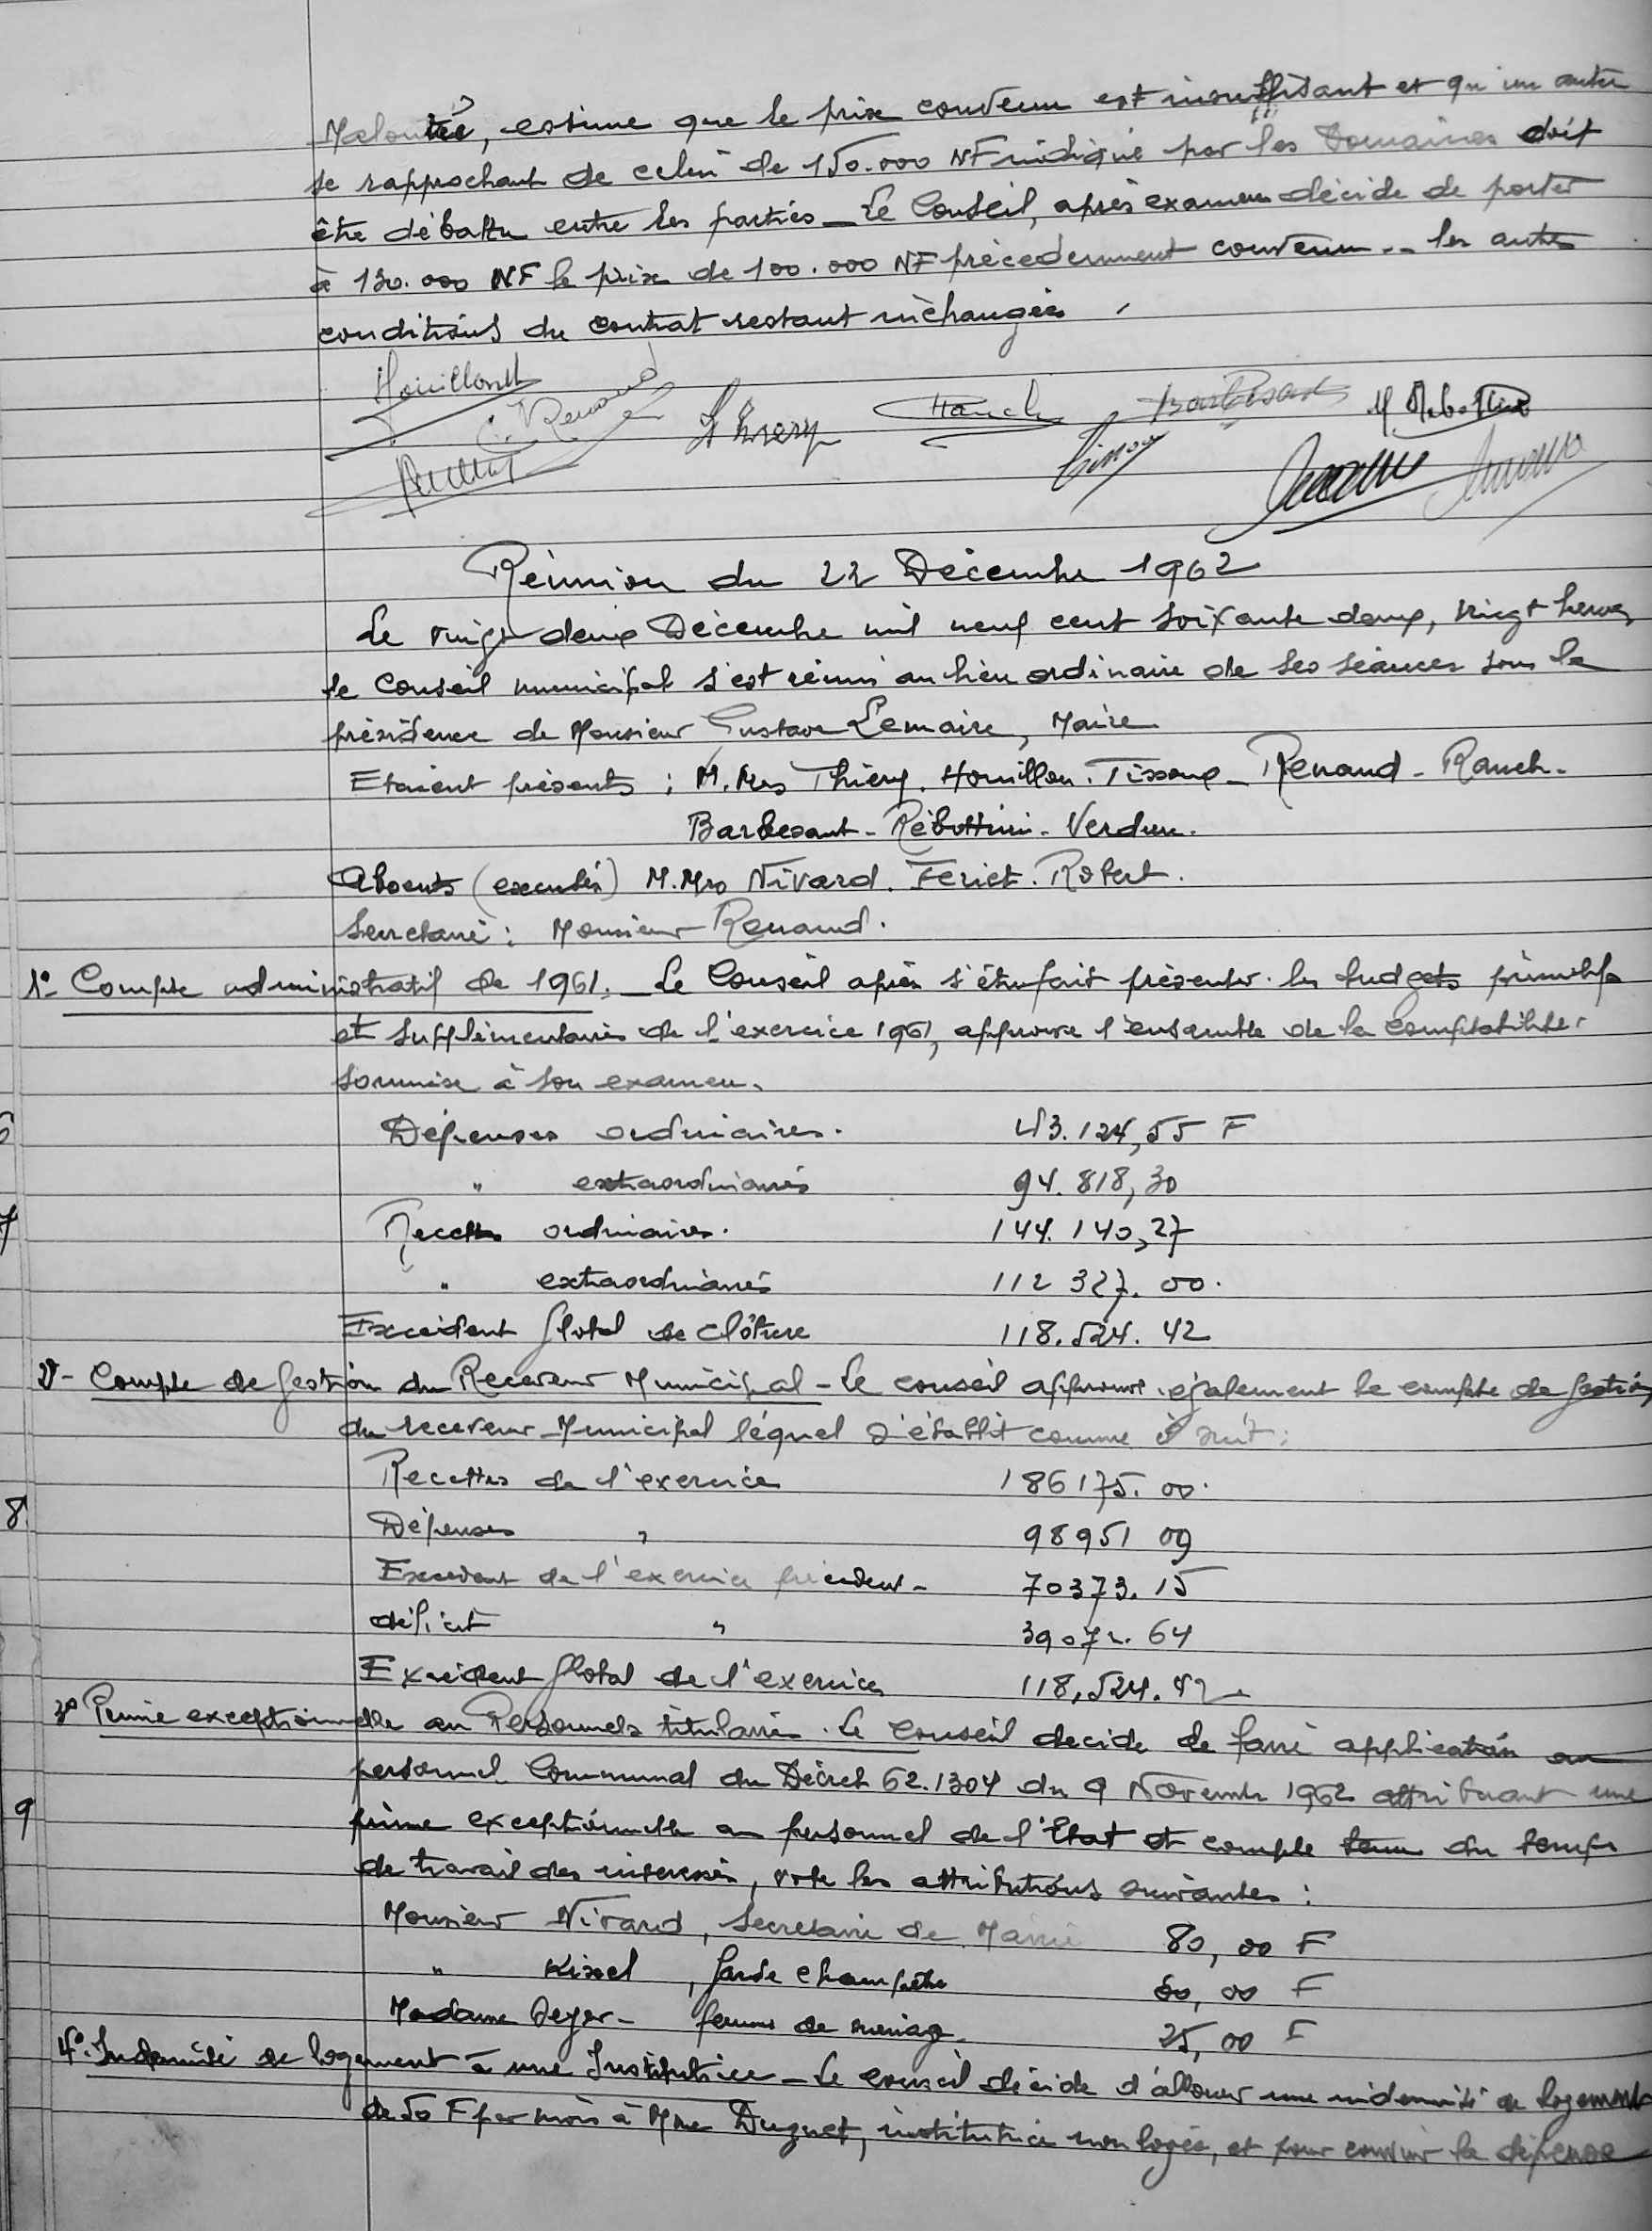 estime que le prix convenu est insuffisant et qu'un autre
se rapprochant de celui de 150.000 NF indiqué par les Domaines doit
être débattu entre les parties _ Le Conseil, après examen décide de porter
à 130.000 NF le prix de 100.000 NF précedemment convenu _ les autres
conditions du contrat restant inchangées
Houillon
C. Renaud
Thiery
Rauch
Barbesant
M. Rebottini
Tissoux
Réunion du 22 Décembre 1962
Le vingt deux Décembre mil neuf cent soixante deux, vingt heures
le Conseil municipal s'est réuni au lieu ordinaire de ses séances sous la
présidence de Monsieur Gustave Lemaire, Maire
Etaient présents : M.Mrs Thiery. Houillon. Tissoux _ Renaud - Rauch.
Barbesant - Rébottini - Verdun.
Absents (excusés) M.Mrs Nivard. Feriet. Robert.
Secretaire : Monsieur Renaud.
1°- Compte administratif de 1961. _ Le Conseil après s'être fait présenter les budgets primitifs
et supplémentaires de l'exercice 1961, approuve l'ensemble de la comptabilité
soumise à son examen.
Dépenses ordinaires. 43.124,55 F
" extraordinaires 94.818,30
Recettes ordinaires. 144.140,27
" extraordinaires 112 327.00.
Excédent global de clôture 118.524.42
2° - Compte de gestion du Receveur Municipal - Le conseil approuve également le compte de gestion
du receveur Municipal léquel s'établit comme suit :
Recettes de l'exercice 186175.00.
Dépenses " 98951 09
Excédent de l'exercice précédent - 70373.15
déficit " 39072.64
Excédent global de l'exercice 118,524.42
3° Prime exceptionnelle au Personnel titulaire. Le Conseil decide de faire application au
personnel Communal du Décret 62.1304 du 9 Novembre 1962 attribuant une
prime exceptionnelle au personnel de l'Etat et compte tenu du temps
de travail des interessés, vote les attributions suivantes :
Monsieur Nivard, Secretaire de Mairie 80,00 F
" Kissel, garde champêtre 60,00 F
Madame Deyer - femme de menage. 25,00 F
4°. Indemnité de logement à une Institutrice _ Le conseil décide d'allouer une indemnité de logement
de 50 F par mois à Mme Duguet, institutrice non logée, et pour couvrir la dépense
7
8
9